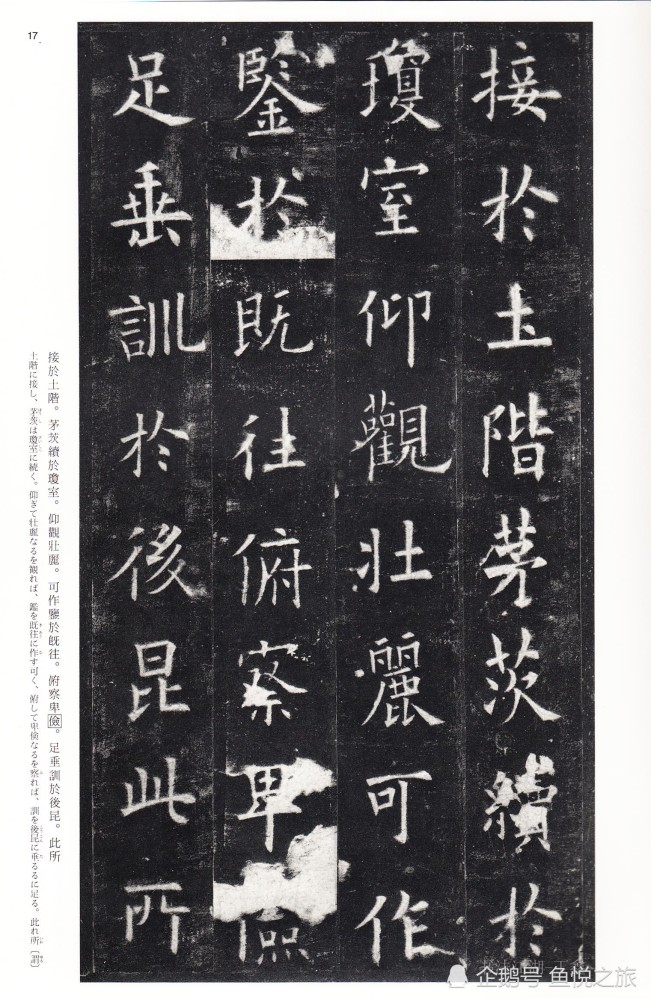 17
接於土階茅茨續於
瓊室仰觀壯麗可作
鑒於既往俯察卑儉
足垂訓於後昆此所
接於土階。茅茨續於瓊室。仰觀壯麗。可作鑒於既往。俯察卑儉。足垂訓於後昆。此所
土階に接し、茅茨は瓊室に続く。仰ぎて壮麗なるを観れば、鑑を既往に作す可く、俯して卑倹なるを察れば、訓を後昆に垂るるに足る。此れ所〔謂〕
企鹅号 鱼悦之旅